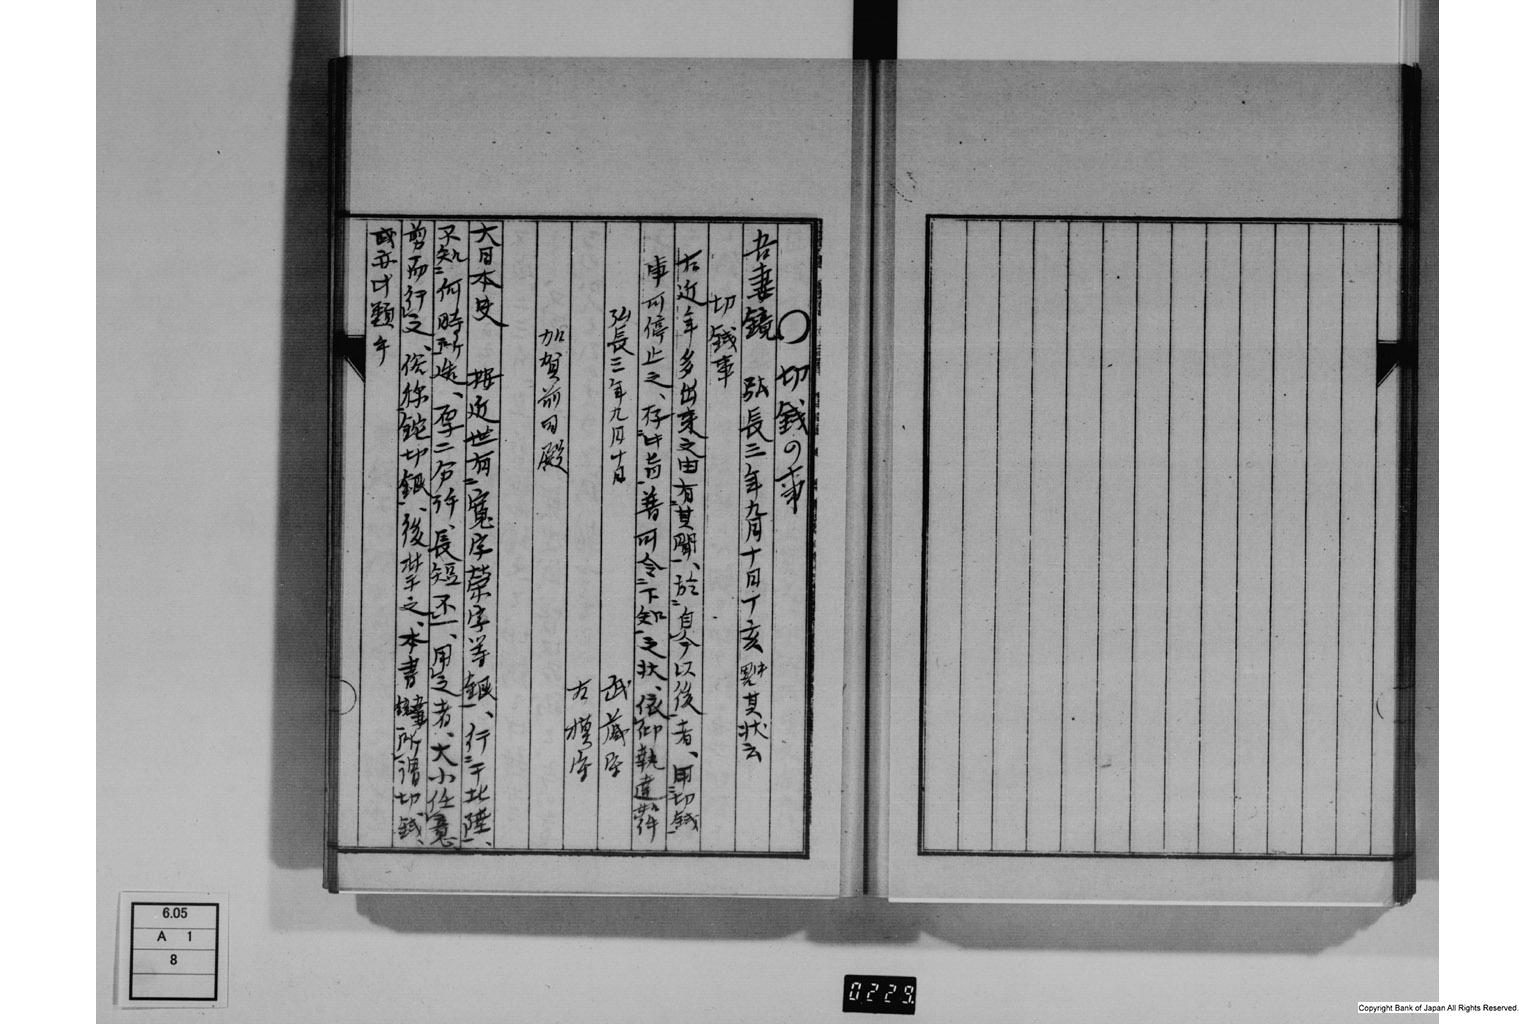 ○切銭の事
吾妻鏡 弘長三年九月十日丁亥 其状云
切錢事
右近年多出来之由有其聞、於自今以後者、用切錢
事可停止之、存此旨普可令下知之状、依仰執達如件
弘長三年九月十日
武蔵守
相模守
加賀前司殿
大日本史 按近世有寛字榮字等銀、行于北陸、
不知何時所造、厚二分許、長短不一、用之者、大小任意
剪而行之、俗称鉈切銀、後禁之、本書所謂切銭、
或亦此類乎
6.05
A 1
8
0229.
Copyright Bank of Japan All Rights Reserved.